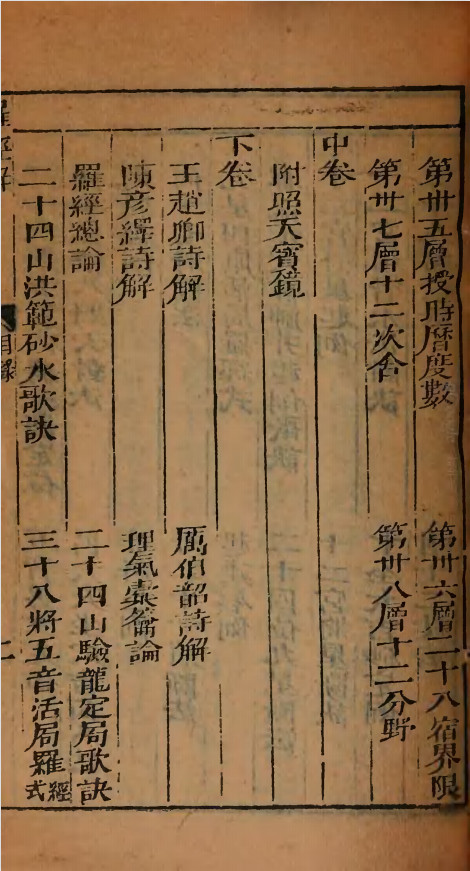 第卅五層授時曆度數　第卅六層二十八宿界限
第卅七層十二次舍　第卅八層十二分野
中卷
附照天寶鏡
下卷
王趙卿詩解　厲伯韶詩解
陳彥繹詩解　理氣橐籥論
羅經總論　二十四山驗龍定局歌訣
二十四山洪範砂水歌訣　三十八將五音活局羅經式
羅經解　目錄　二